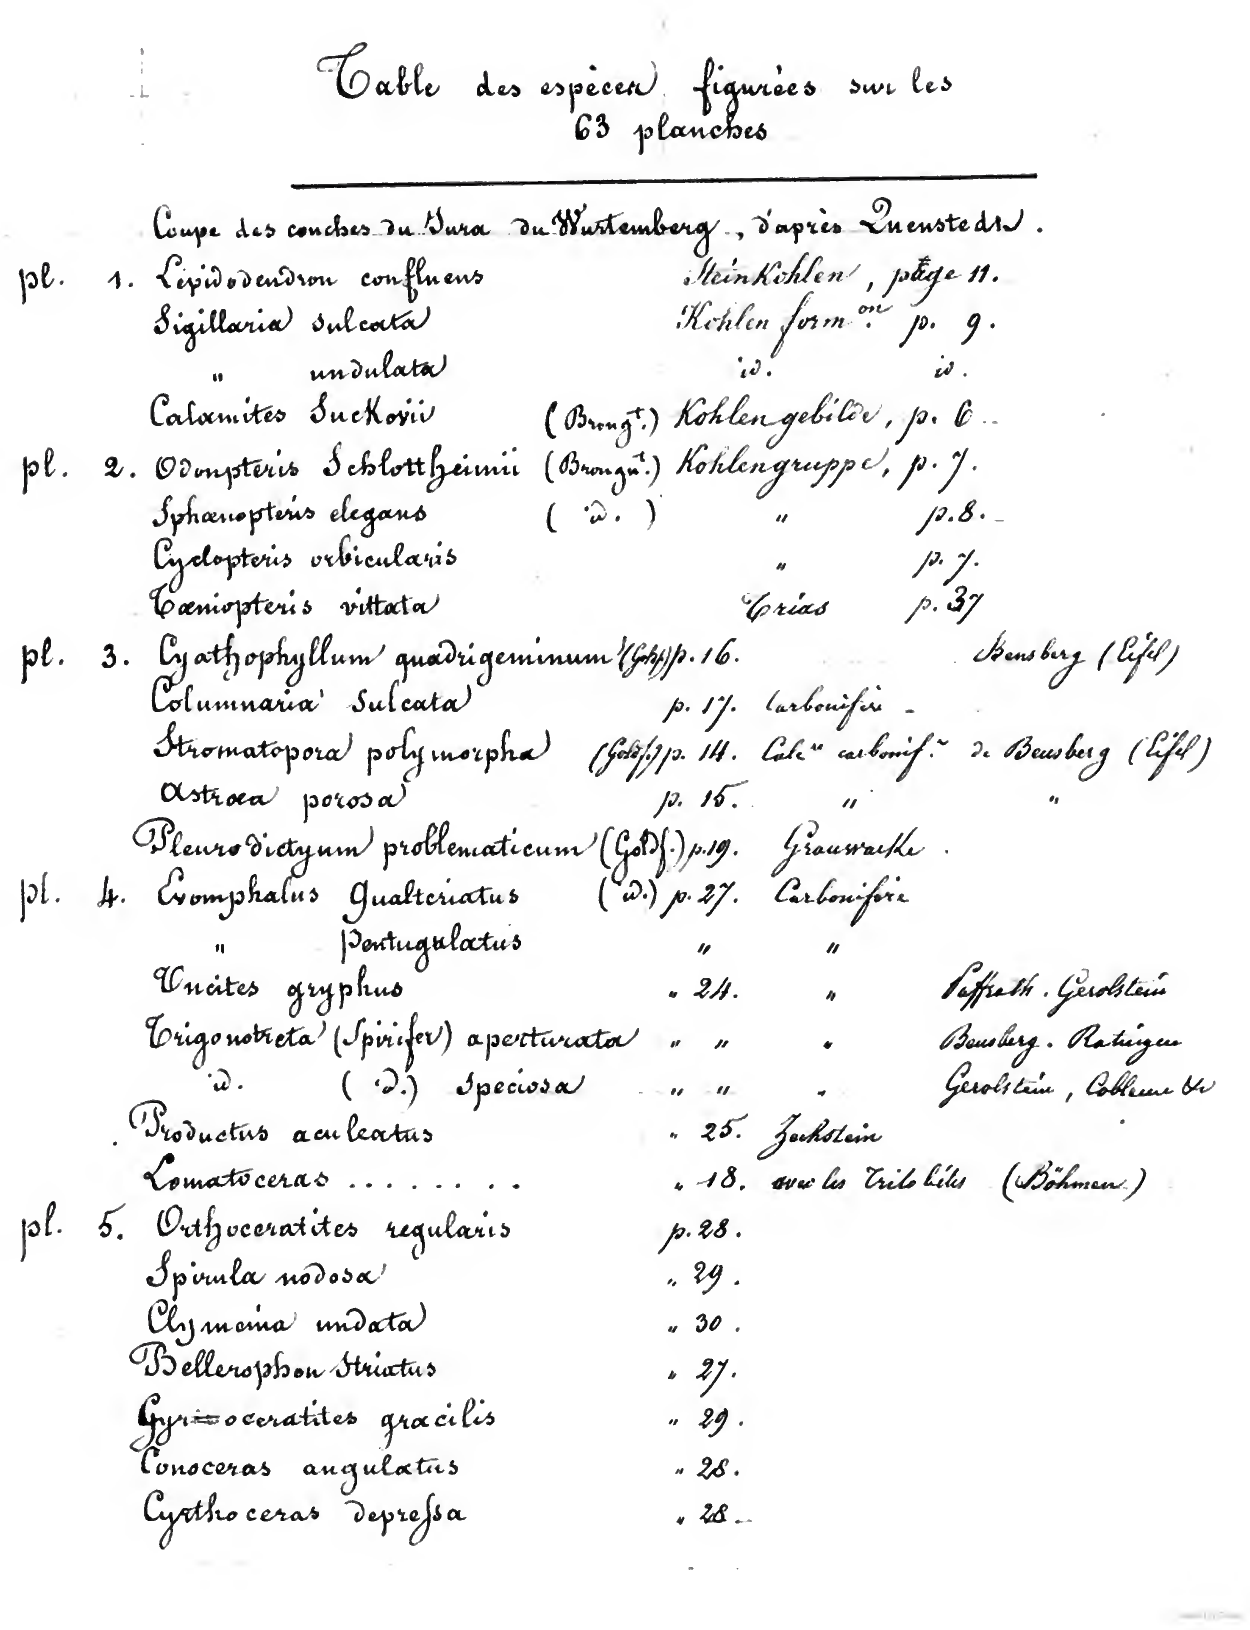 Table des espèces figurées sur les
63 planches
Coupe des couches du Jura du Wurtemberg, d'après Quenstedt.
pl. 1. Lepidodendron confluens Steinkohlen, page 11.
Sigillaria sulcata Kohlen form on. p. 9.
" undulata id. id.
Calamites Suckovii (Brongt.) Kohlengebilde, p. 6
pl. 2. Odonpteris Schlottheimii (Brongnt.) Kohlengruppe, p. 7.
Sphænopteris elegans ( id. ) " p. 8.
Cyclopteris orbicularis " p. 7.
Tæniopteris vittata Trias p. 37
pl. 3. Cyathophyllum quadrigeminum (Goldf) p. 16. Bensberg (Eifel)
Columnaria sulcata p. 17. Carbonifère
Stromatopora polymorpha (Goldf.) p. 14. Calc re carbonif. re de Bensberg (Eifel)
Astræa porosa p. 15. " "
Pleurodictyum problematicum (Goldf.) p. 19. Grauwacke.
pl. 4. Evomphalus Gualteriatus (id.) p. 27. Carbonifère
" pentugulatus " "
Uncites gryphus " 24. " Paffrath. Gerolstein
Trigonotreta (Spirifer) aperturata " " " Bensberg. Ratingen
id. (id.) speciosa " " " Gerolstein, Coblence &c
Productus aculeatus " 25. Zechstein
Lomatoceras ........ " 18. avec les Trilobites (Böhmen)
pl. 5. Orthoceratites regularis p. 28.
Spirula nodosa " 29.
Clymenia undata " 30.
Bellerophon striatus " 27.
Gyroceratites gracilis " 29.
Conoceras angulatus " 28.
Cyrthoceras depressa " 28